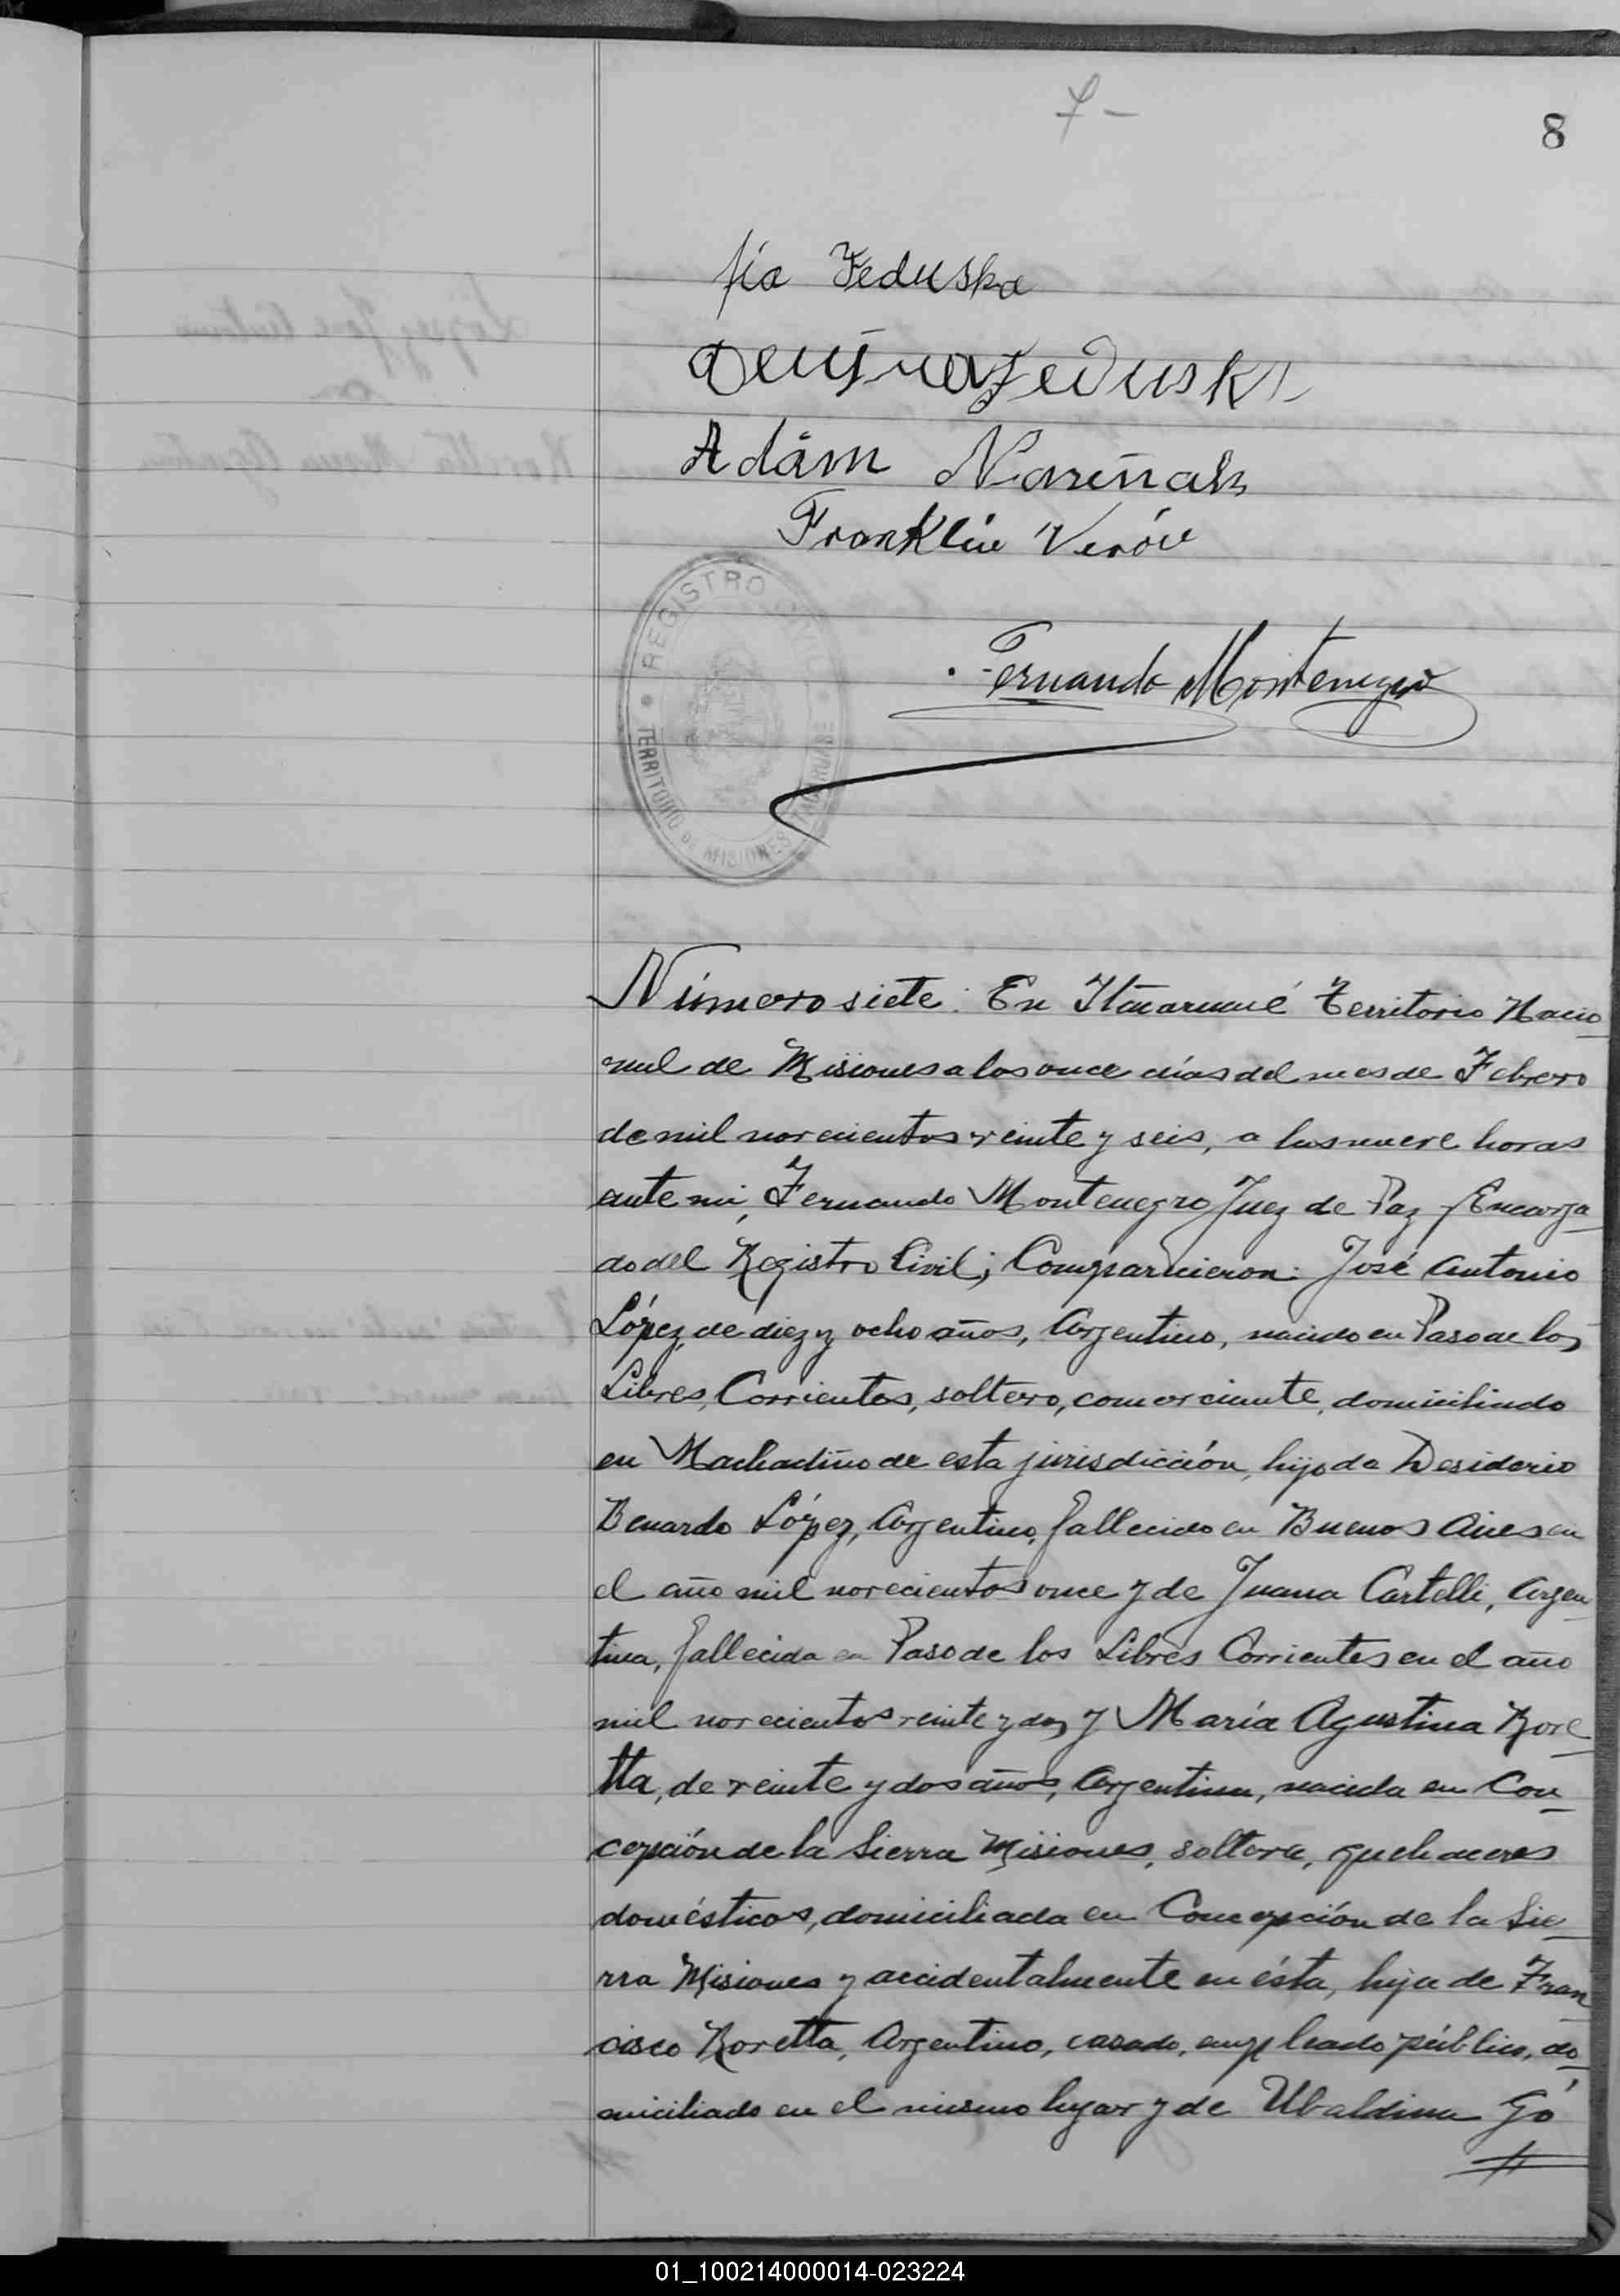 7-
8
fía Feduska
Feduski
Adám
Franklin Verón
REGISTRO CIVIL
TERRITORIO DE MISIONES
Fernando Montenegro
Número siete: En Itacaruaré Territorio Nacio
nal de Misiones a los once días del mes de Febrero
de mil novecientos veinte y seis, a las nueve horas
ante mi, Fernando Montenegro Juez de Paz y Encarga
do del Registro Civil; Comparecieron: José Antonio
López, de diez y ocho años, Argentino, nacido en Paso de los
Libres, Corrientes, soltero, comerciante, domiciliado
en Machadiño de esta jurisdicción, hijo de Desiderio
Benardo López, Argentino, fallecido en Buenos Aires en
el año mil novecientos once y de Juana Cartelli, Argen
tina, fallecida en Paso de los Libres Corrientes en el año
mil novecientos veinte y dos y María Agustina Rore
tta, de veinte y dos años, Argentina, nacida en Con
cepción de la Sierra Misiones, soltera, quehaceres
domésticos, domiciliada en Concepción de la Sie
rra Misiones y accidentalmente en ésta, hija de Fran
cisco Roretta, Argentino, casado, empleado público, do
miciliado en el mismo lugar y de Ubaldina Gó
01_100214000014-023224